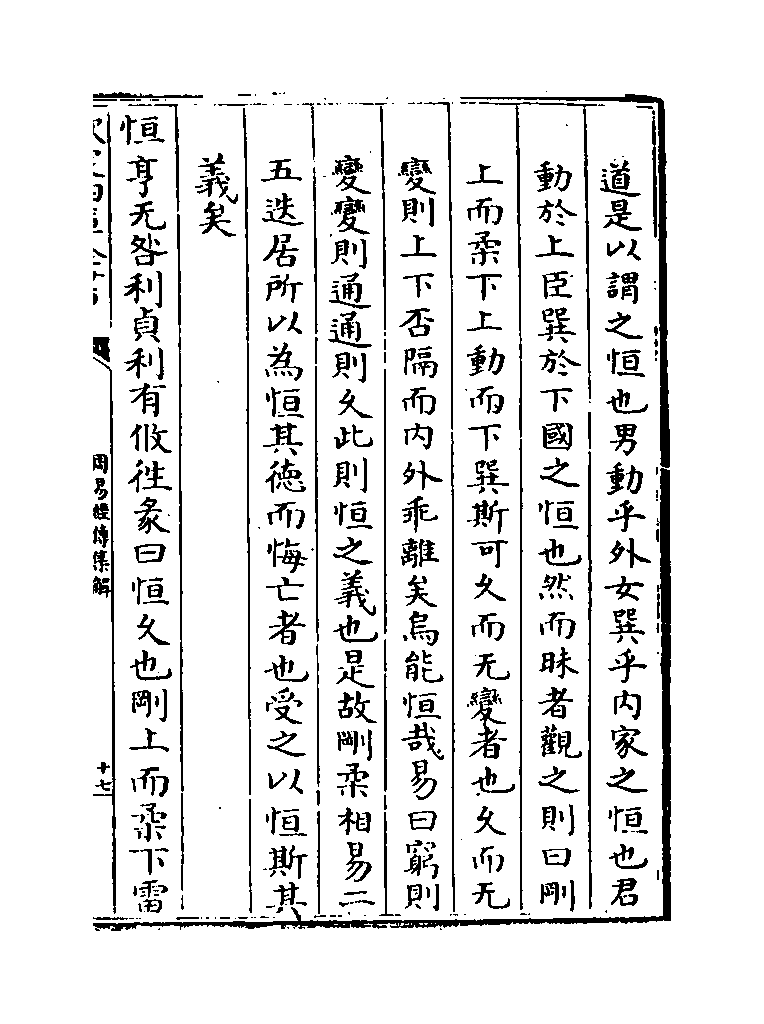 道是以謂之恒也男動乎外女巽乎内家之恒也君
動於上臣巽於下國之恒也然而昧者觀之則曰剛
上而柔下上動而下巽斯可久而无變者也久而无
變則上下否隔而内外乖離矣烏能恒哉易曰窮則
變變則通通則久此則恒之義也是故剛柔相易二
五迭居所以為恒其徳而悔亡者也受之以恒斯其
義矣
恒亨无咎利貞利有攸往彖曰恒久也剛上而柔下雷
周易經傳集解
十七